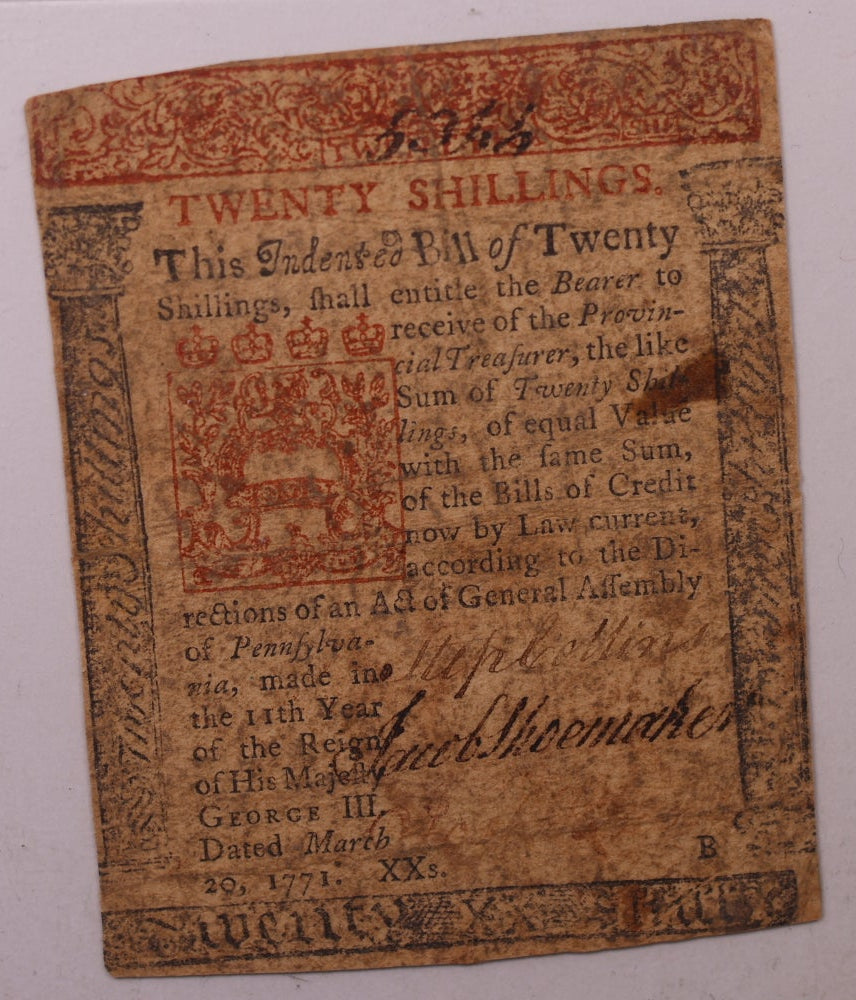 TWENTY SHILLINGS.
This Indented Bill of Twenty
Shillings, ſhall entitle the Bearer to
receive of the Provin-
cial Treaſurer, the like
Sum of Twenty Shil-
lings, of equal Value
with the ſame Sum,
of the Bills of Credit
now by Law current,
according to the Di-
rections of an Act of General Aſſembly
of Pennſylva-
nia, made in
the 11th Year
of the Reign
of His Majeſty
GEORGE III.
Dated March
20, 1771. XXs.
Step Collins
Jacob Shoemaker
B
Twenty Shillings
Twenty Shillings
Twenty XX Shill